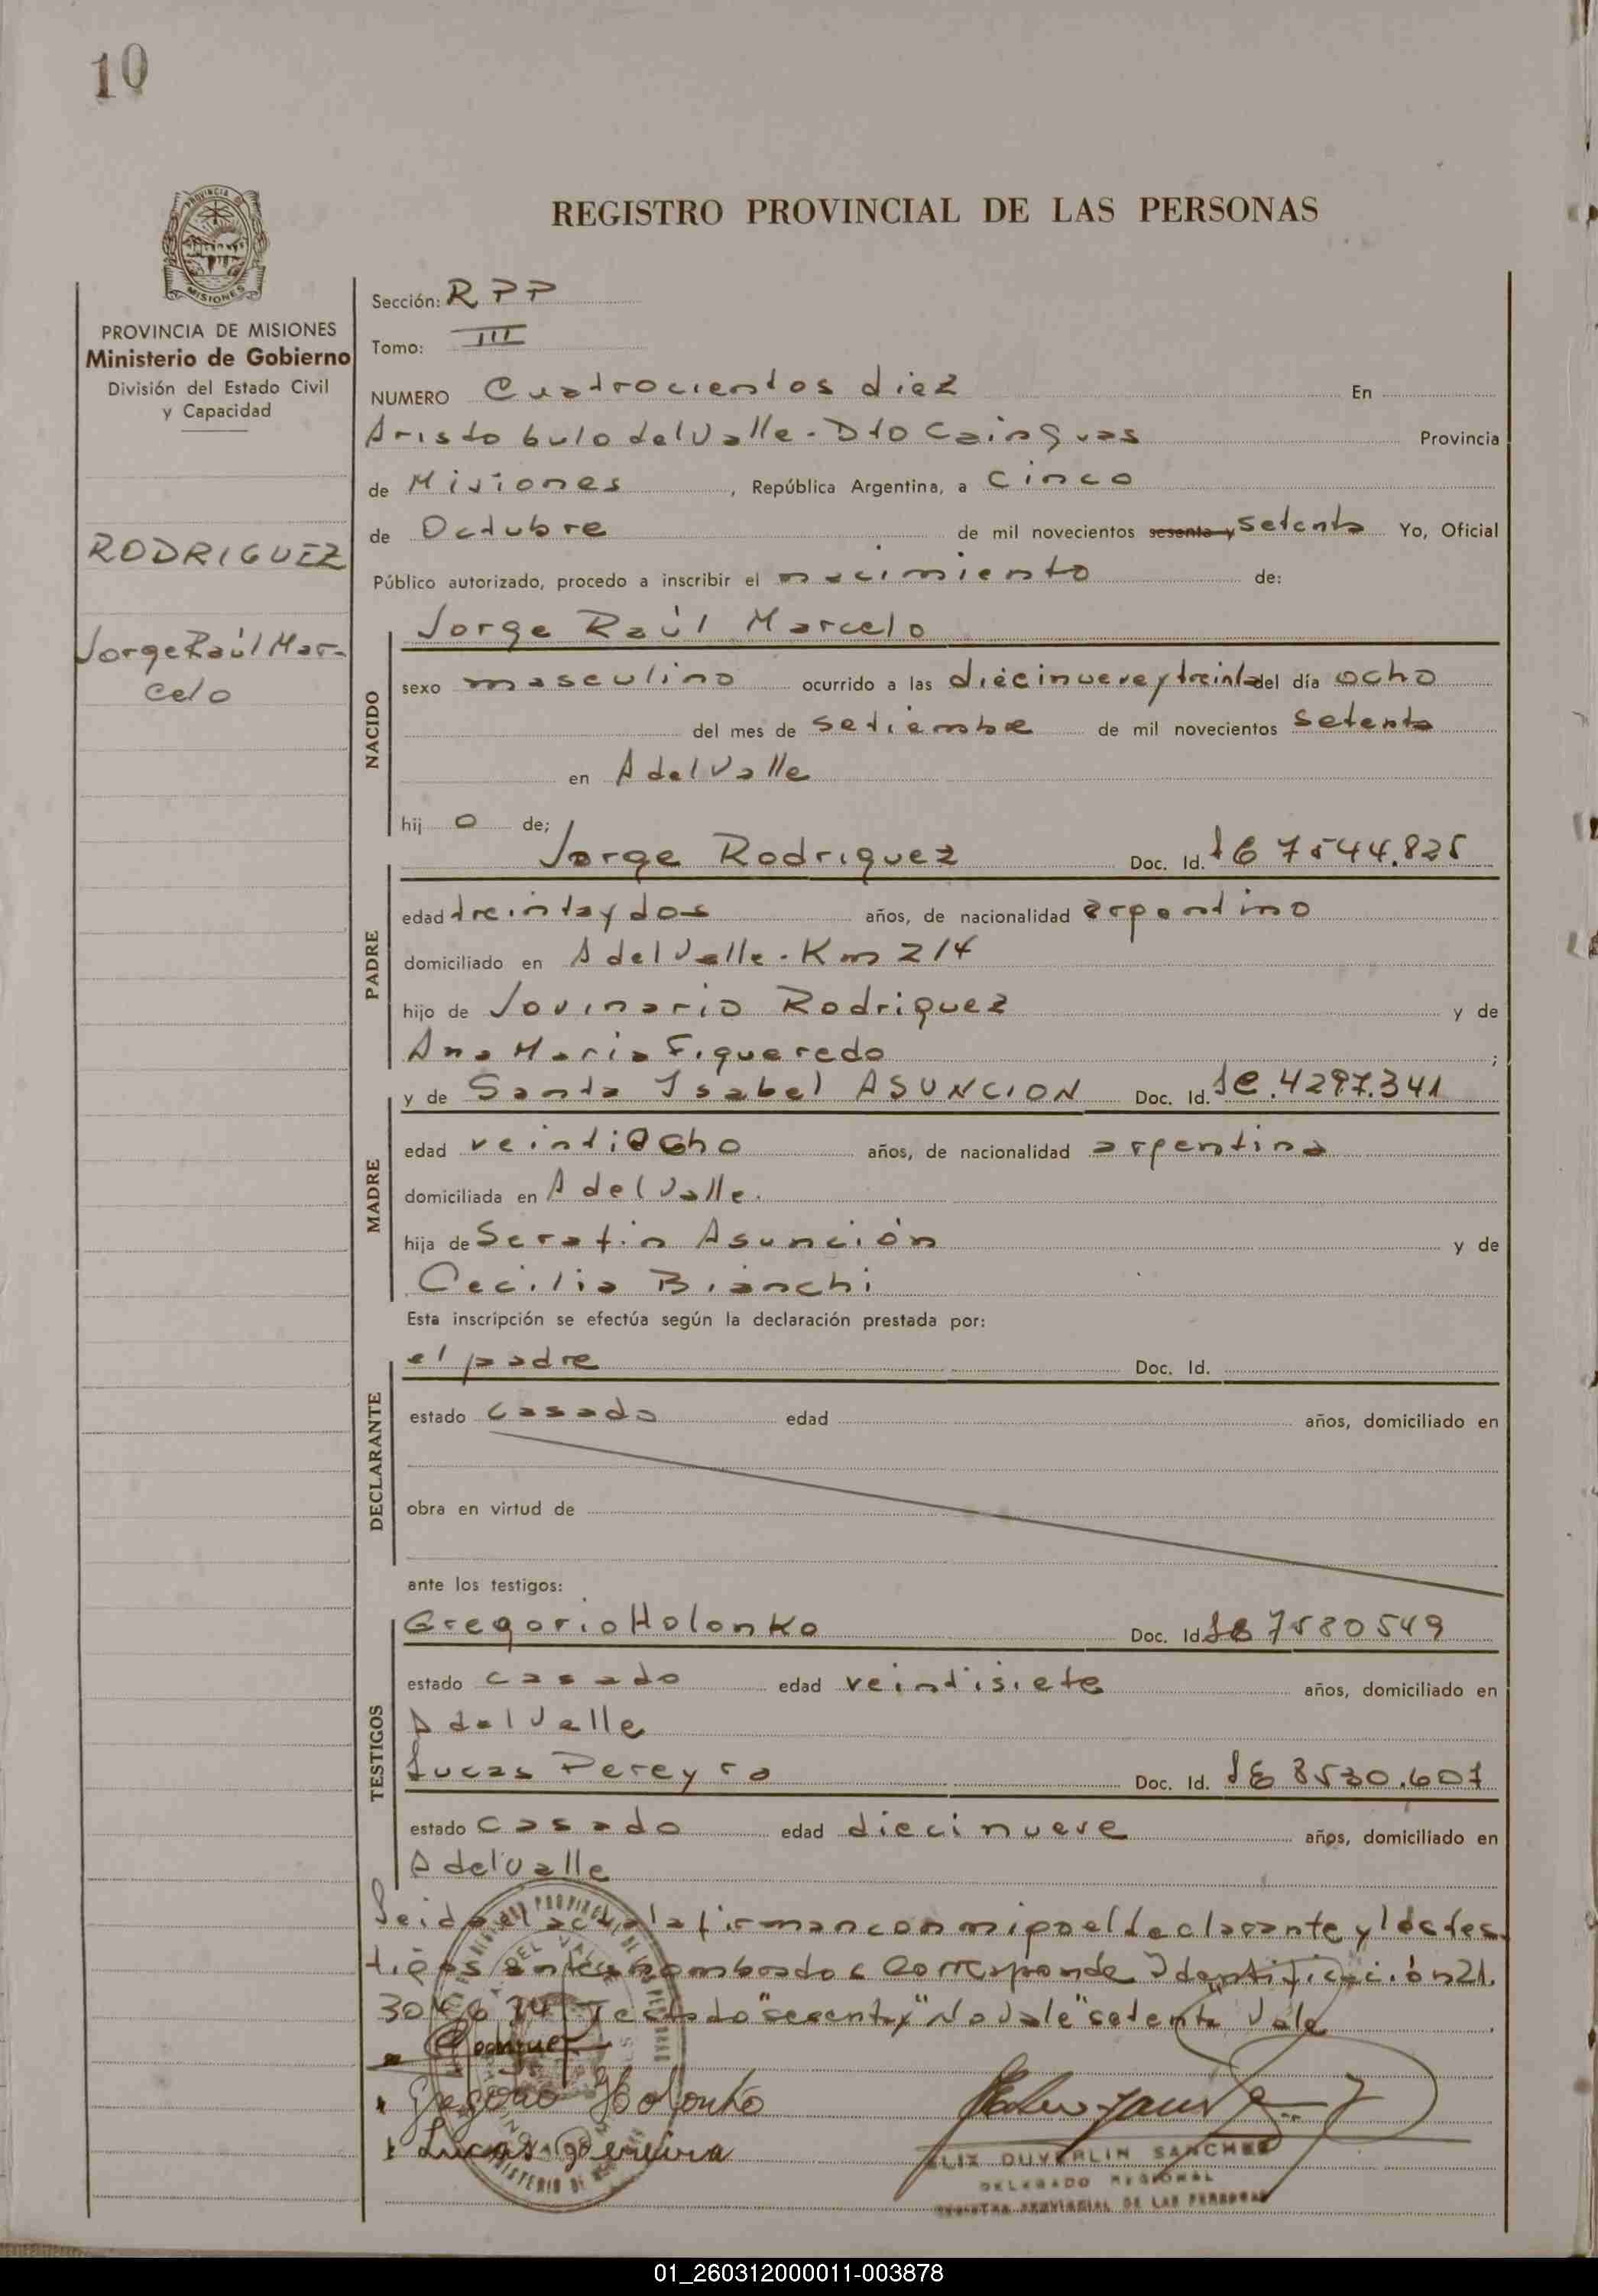 10
REGISTRO PROVINCIAL DE LAS PERSONAS
PROVINCIA DE MISIONES
Ministerio de Gobierno
División del Estado Civil
y Capacidad
RODRIGUEZ
Jorge Raúl Mar-
celo
Sección: RPP
Tomo: III
NUMERO Cuatrocientos diez En
Aristobulo del Valle - Dto Cainguas Provincia
de Misiones, República Argentina, a Cinco
de Octubre de mil novecientos sesenta y setenta Yo, Oficial
Público autorizado, procedo a inscribir el nacimiento de:
NACIDO
Jorge Raúl Marcelo
sexo masculino ocurrido a las diecinueve y treinta del día ocho
del mes de setiembre de mil novecientos setenta
en A del Valle
hijo de;
PADRE
Jorge Rodriguez Doc. Id. LE 7544.825
edad treinta y dos años, de nacionalidad argentino
domiciliado en A del Valle - Km 214
hijo de Jovinario Rodriguez y de
Ana Maria Figueredo ;
MADRE
y de Santa Isabel ASUNCION Doc. Id. LC. 4297.341
edad veintiocho años, de nacionalidad argentina
domiciliada en A del Valle.
hija de Serafin Asunción y de
Cecilia Bianchi
Esta inscripción se efectúa según la declaración prestada por:
DECLARANTE
el padre Doc. Id.
estado casado edad años, domiciliado en
obra en virtud de
ante los testigos:
TESTIGOS
Gregorio Holonko Doc. Id. LE 7580549
estado casado edad veintisiete años, domiciliado en
A del Valle
Lucas Pereyra Doc. Id. LE 8530.601
estado casado edad diecinueve años, domiciliado en
A del Valle
Leida el acta la firman con migo el declarante y los tes
tigos antes nombrados Corresponde Identificación 21.
Testado "sesenta y" No Vale "setenta" Vale
Rodriguez
Gregorio Holonko
Lucas Pereira
DUVERLIN SANCHEZ
DELEGADO REGIONAL
REGISTRO PROVINCIAL DE LAS PERSONAS
01_260312000011-003878